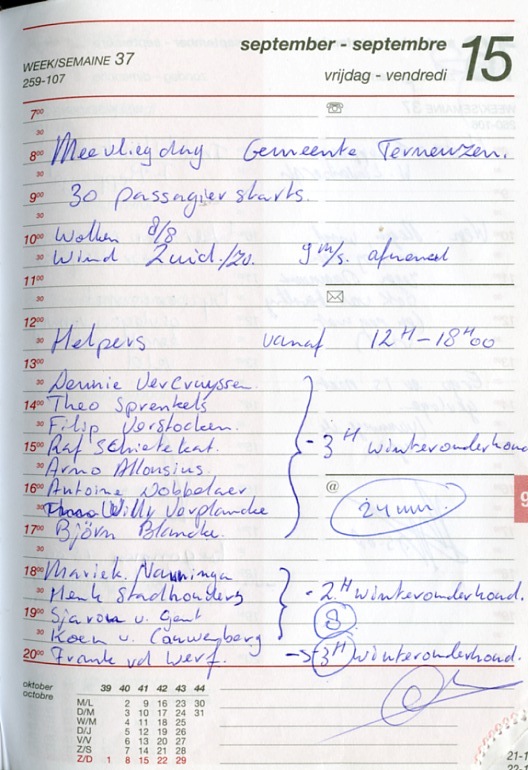 september - septembre 15
WEEK/SEMAINE 37
259-107
vrijdag - vendredi
7⁰⁰
30
8⁰⁰ Meevliegdag Gemeente Terneuzen.
30
9⁰⁰ 30 passagierstarts.
30
10⁰⁰ Wolken 8/8
30 Wind Zuid./zo. 9 m/s. afnemend
11⁰⁰
30
12⁰⁰
30 Helpers vanaf 12H-18H00
13⁰⁰
30 Dennie Vercruyssen.
14⁰⁰ Theo Sprenkels
30 Filip Verstocken.
15⁰⁰ Raf Schietekat. - 3H winteronderhoud
30 Arno Allonsius.
16⁰⁰ Antoine Dobbelaer @
30 Willy Verplancke 24 uur.
17⁰⁰ Björn Blancke.
30
18⁰⁰ Mariek. Nanninga
30 Henk Stadhouders - 2H winteronderhoud.
19⁰⁰ Sjaron v. Gent 8
30 Koen v. Cauwenberg
20⁰⁰ Frank vd Werf. -> 3H winteronderhoud.
oktober
octobre
39 40 41 42 43 44
M/L 2 9 16 23 30
D/M 3 10 17 24 31
W/M 4 11 18 25
D/J 5 12 19 26
V/V 6 13 20 27
Z/S 7 14 21 28
Z/D 1 8 15 22 29
9
21-1
22-1